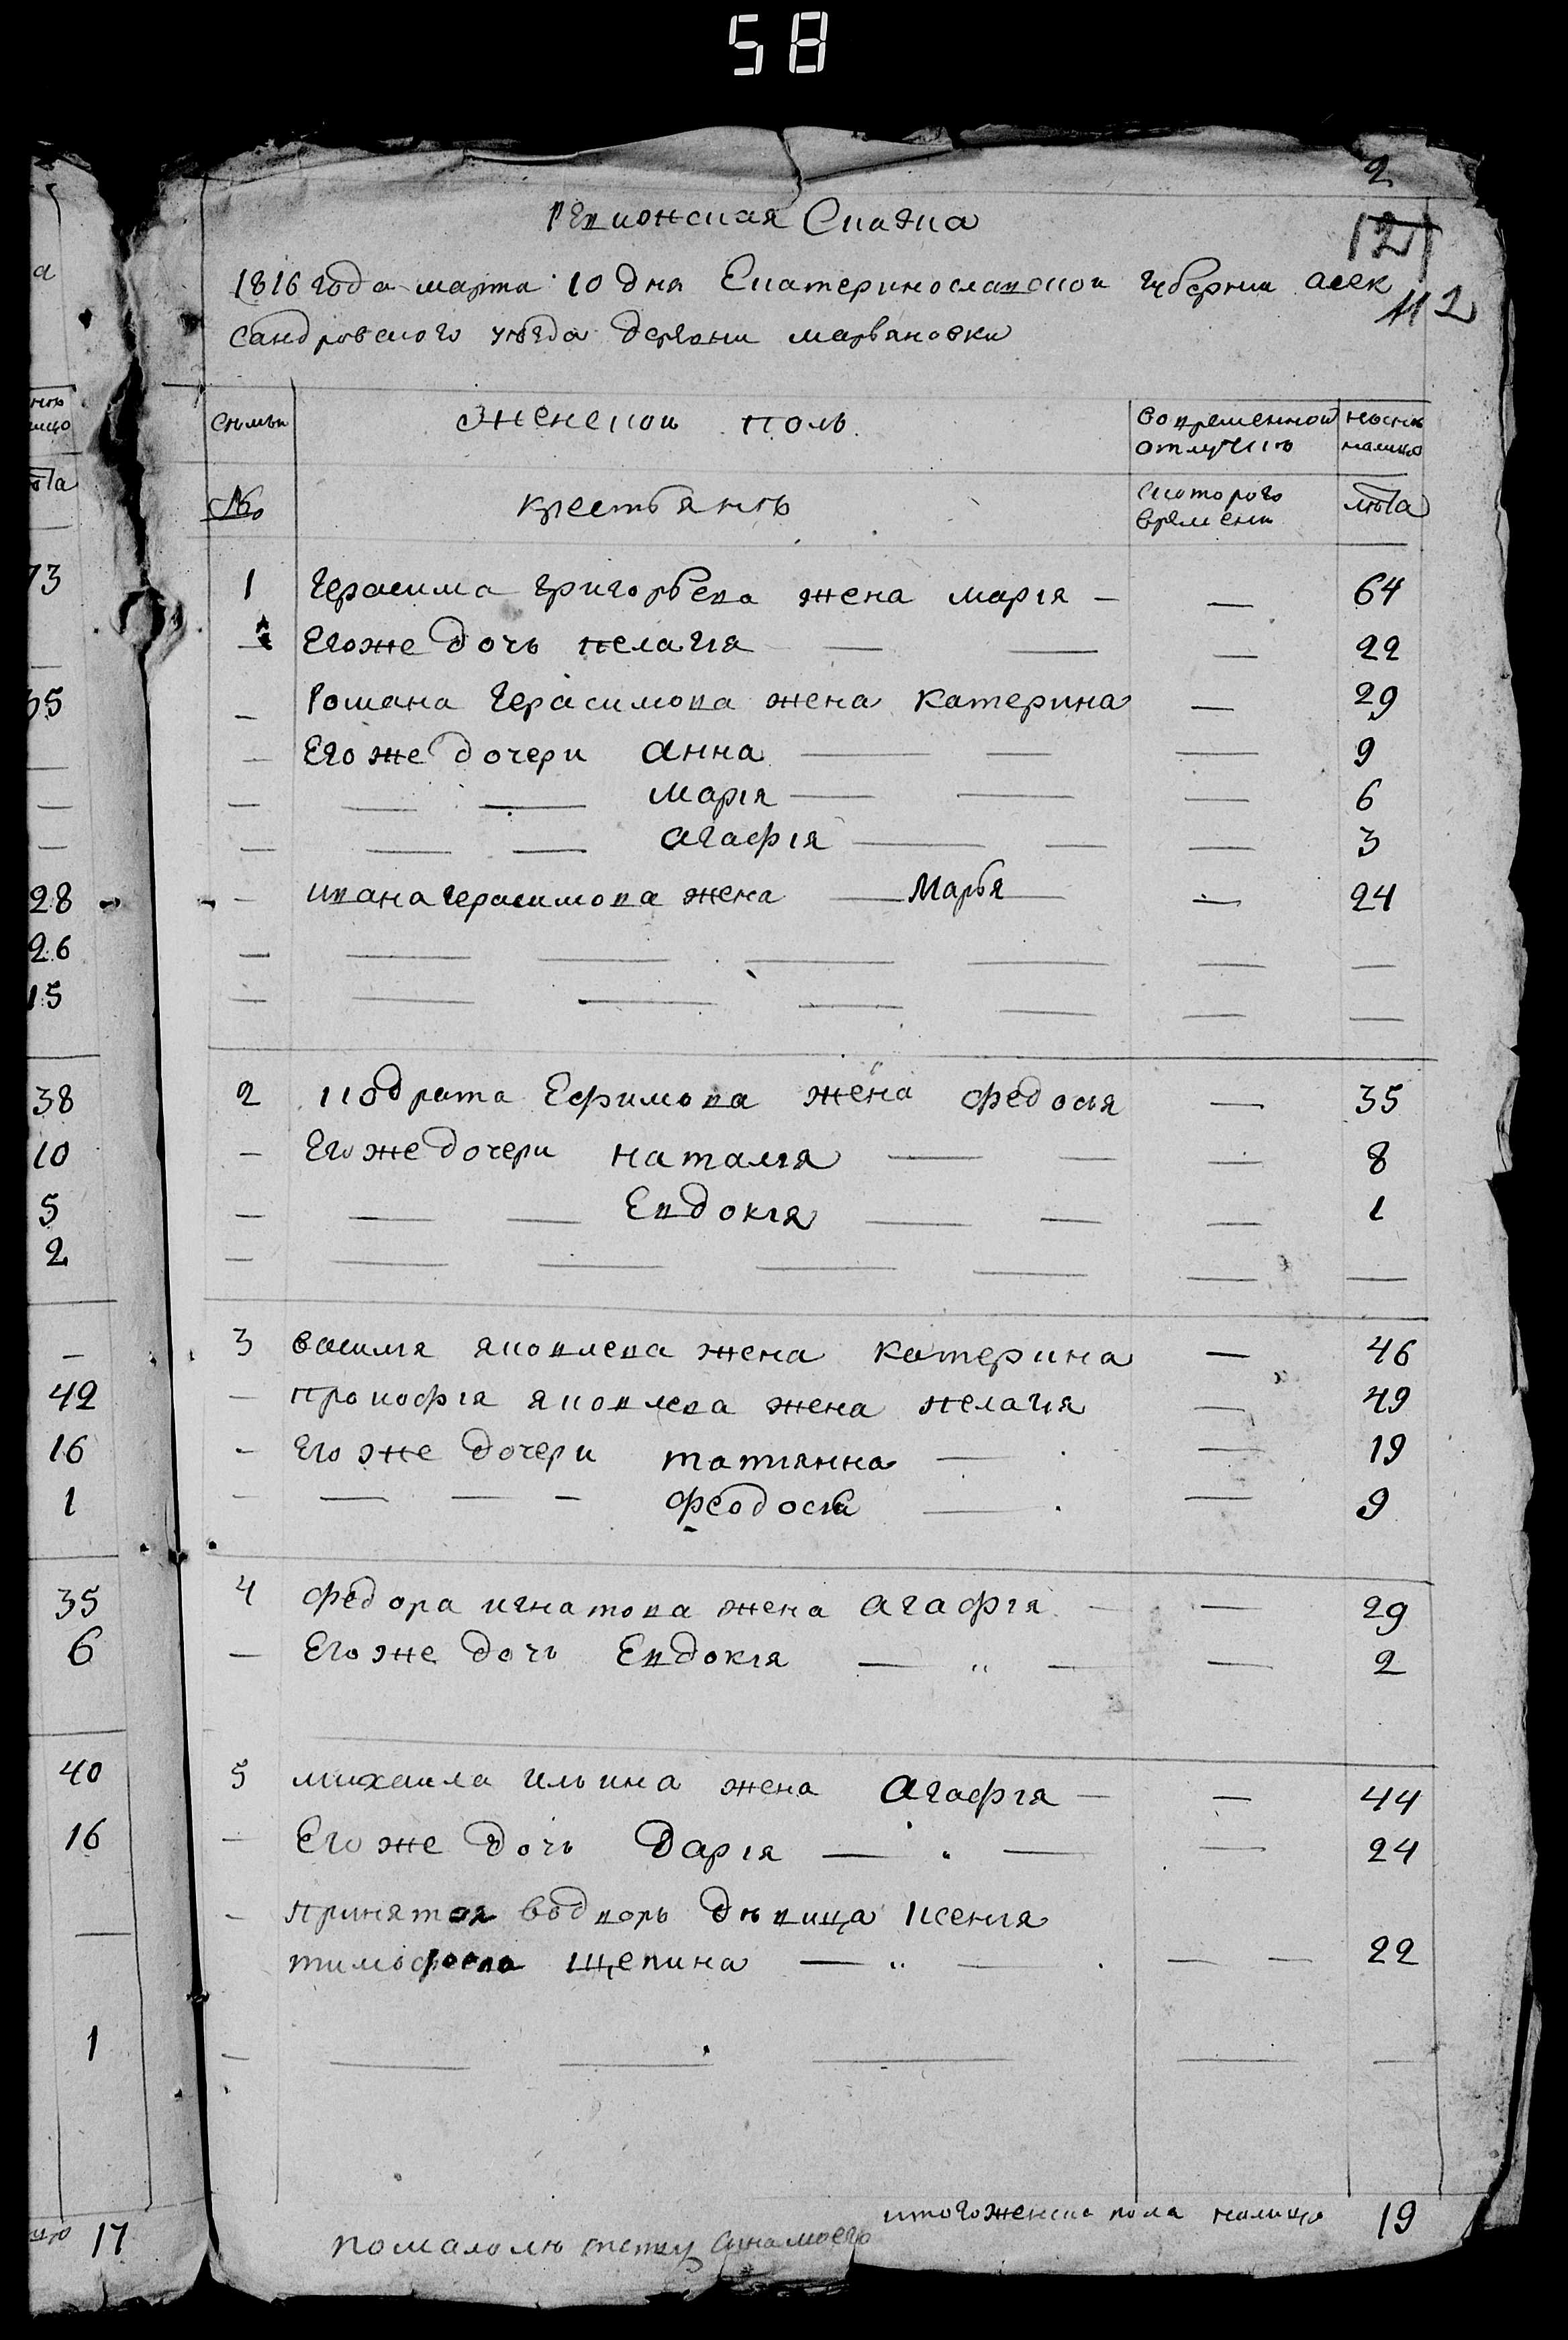 58
2
12
112
Ревижская Сказка
1816 года марта 10 дня Екатеринославской губернии алек
сандровского уѣзда деревни марьяновки
Семьи Женской полъ Вовременной отлучкѣ Нынѣ налицо
№ крестьянъ Скоторого времени лѣта
1 Герасима григорьева жена марія — — 64
— Егоже дочь пелагія — — — 22
— Романа Герасимова жена Катерина — 29
— Его же дочери анна — — — 9
— — — марія — — — 6
— — — агафія — — — 3
— ивана герасимова жена — Марья — — 24
2 кодрата Ефимова жена федосія — 35
— Его же дочери наталія — — — 8
— — — Евдокія — — — 1
3 василія яковлева жена Катерина — 46
— прокофія яковлева жена пелагія — 49
— Его же дочери татіянна — — 19
— — — — феодосія — — 9
4 федора игнатова жена агафія — — 29
— Его же дочь Евдокія — " — — 2
5 михаила ильина жена Агафія — — 44
— Его же дочь Дарія — " — — 24
— принятая водворъ дѣвица Ксенія
тимофеева щепина — " — — — 22
итого женска пола налицо 19
а
налицо
лѣта
73
65
28
26
15
38
10
5
2
—
42
16
1
35
6
40
16
1
17